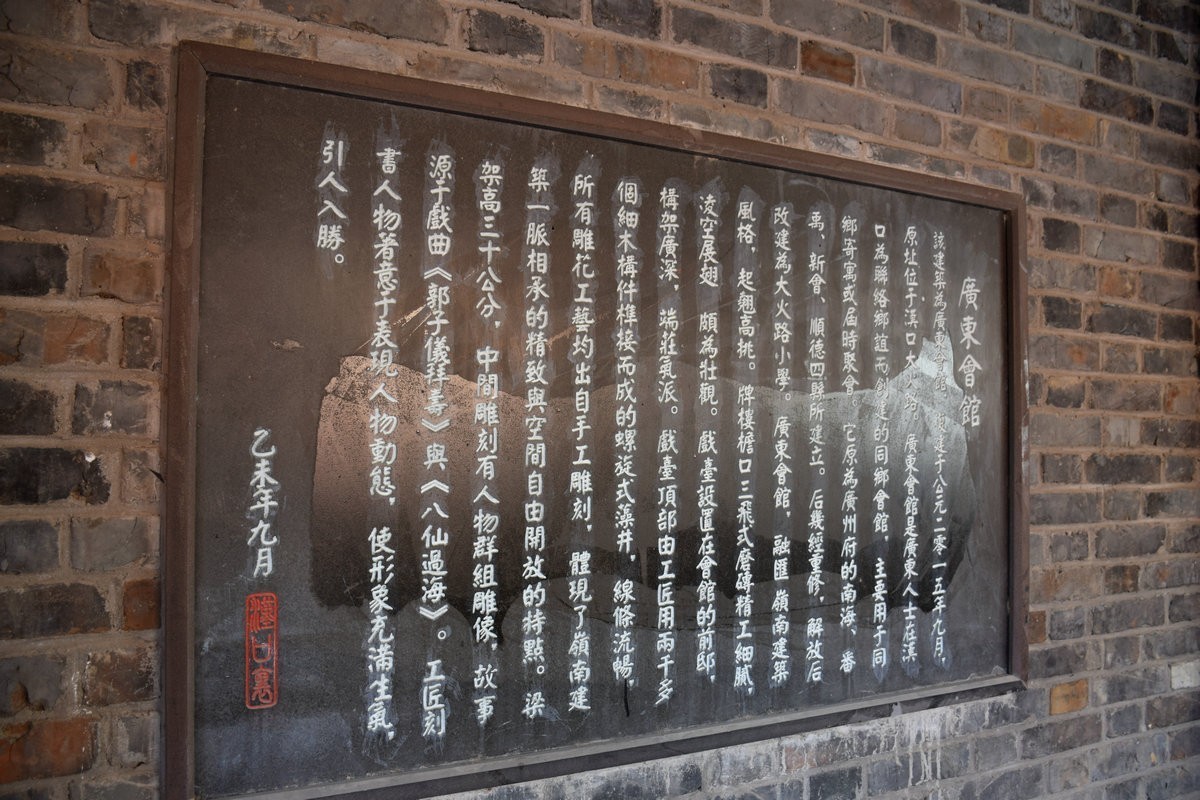 廣東會館
該建築為廣東會館 復建于公元二零一五年九月,
原址位于漢口大火路 廣東會館是廣東人士在漢
口為聯絡鄉誼而創建的同鄉會館, 主要用于同
鄉寄寓或屆時聚會。它原為廣州府的南海、番
禹、新會、順德四縣所建立。后幾經重修, 解放后
改建為大火路小學。廣東會館, 融匯嶺南建築
風格, 起翹高挑。牌樓檐口三飛式磨磚精工細膩,
凌空展翅 頗為壯觀。戲臺設置在會館的前邸,
構架廣深, 端莊氣派。戲臺頂部由工匠用兩千多
個細木構件榫接而成的螺旋式藻井, 線條流暢,
所有雕花工藝均出自手工雕刻, 體現了嶺南建
築一脈相承的精致與空間自由開放的特點。梁
架高三十公分, 中間雕刻有人物群組雕像, 故事
源于戲曲《郭子儀拜壽》與《八仙過海》。工匠刻
書人物著意于表現人物動態, 使形象充滿生氣,
引人入勝。
乙未年九月
漢口裏